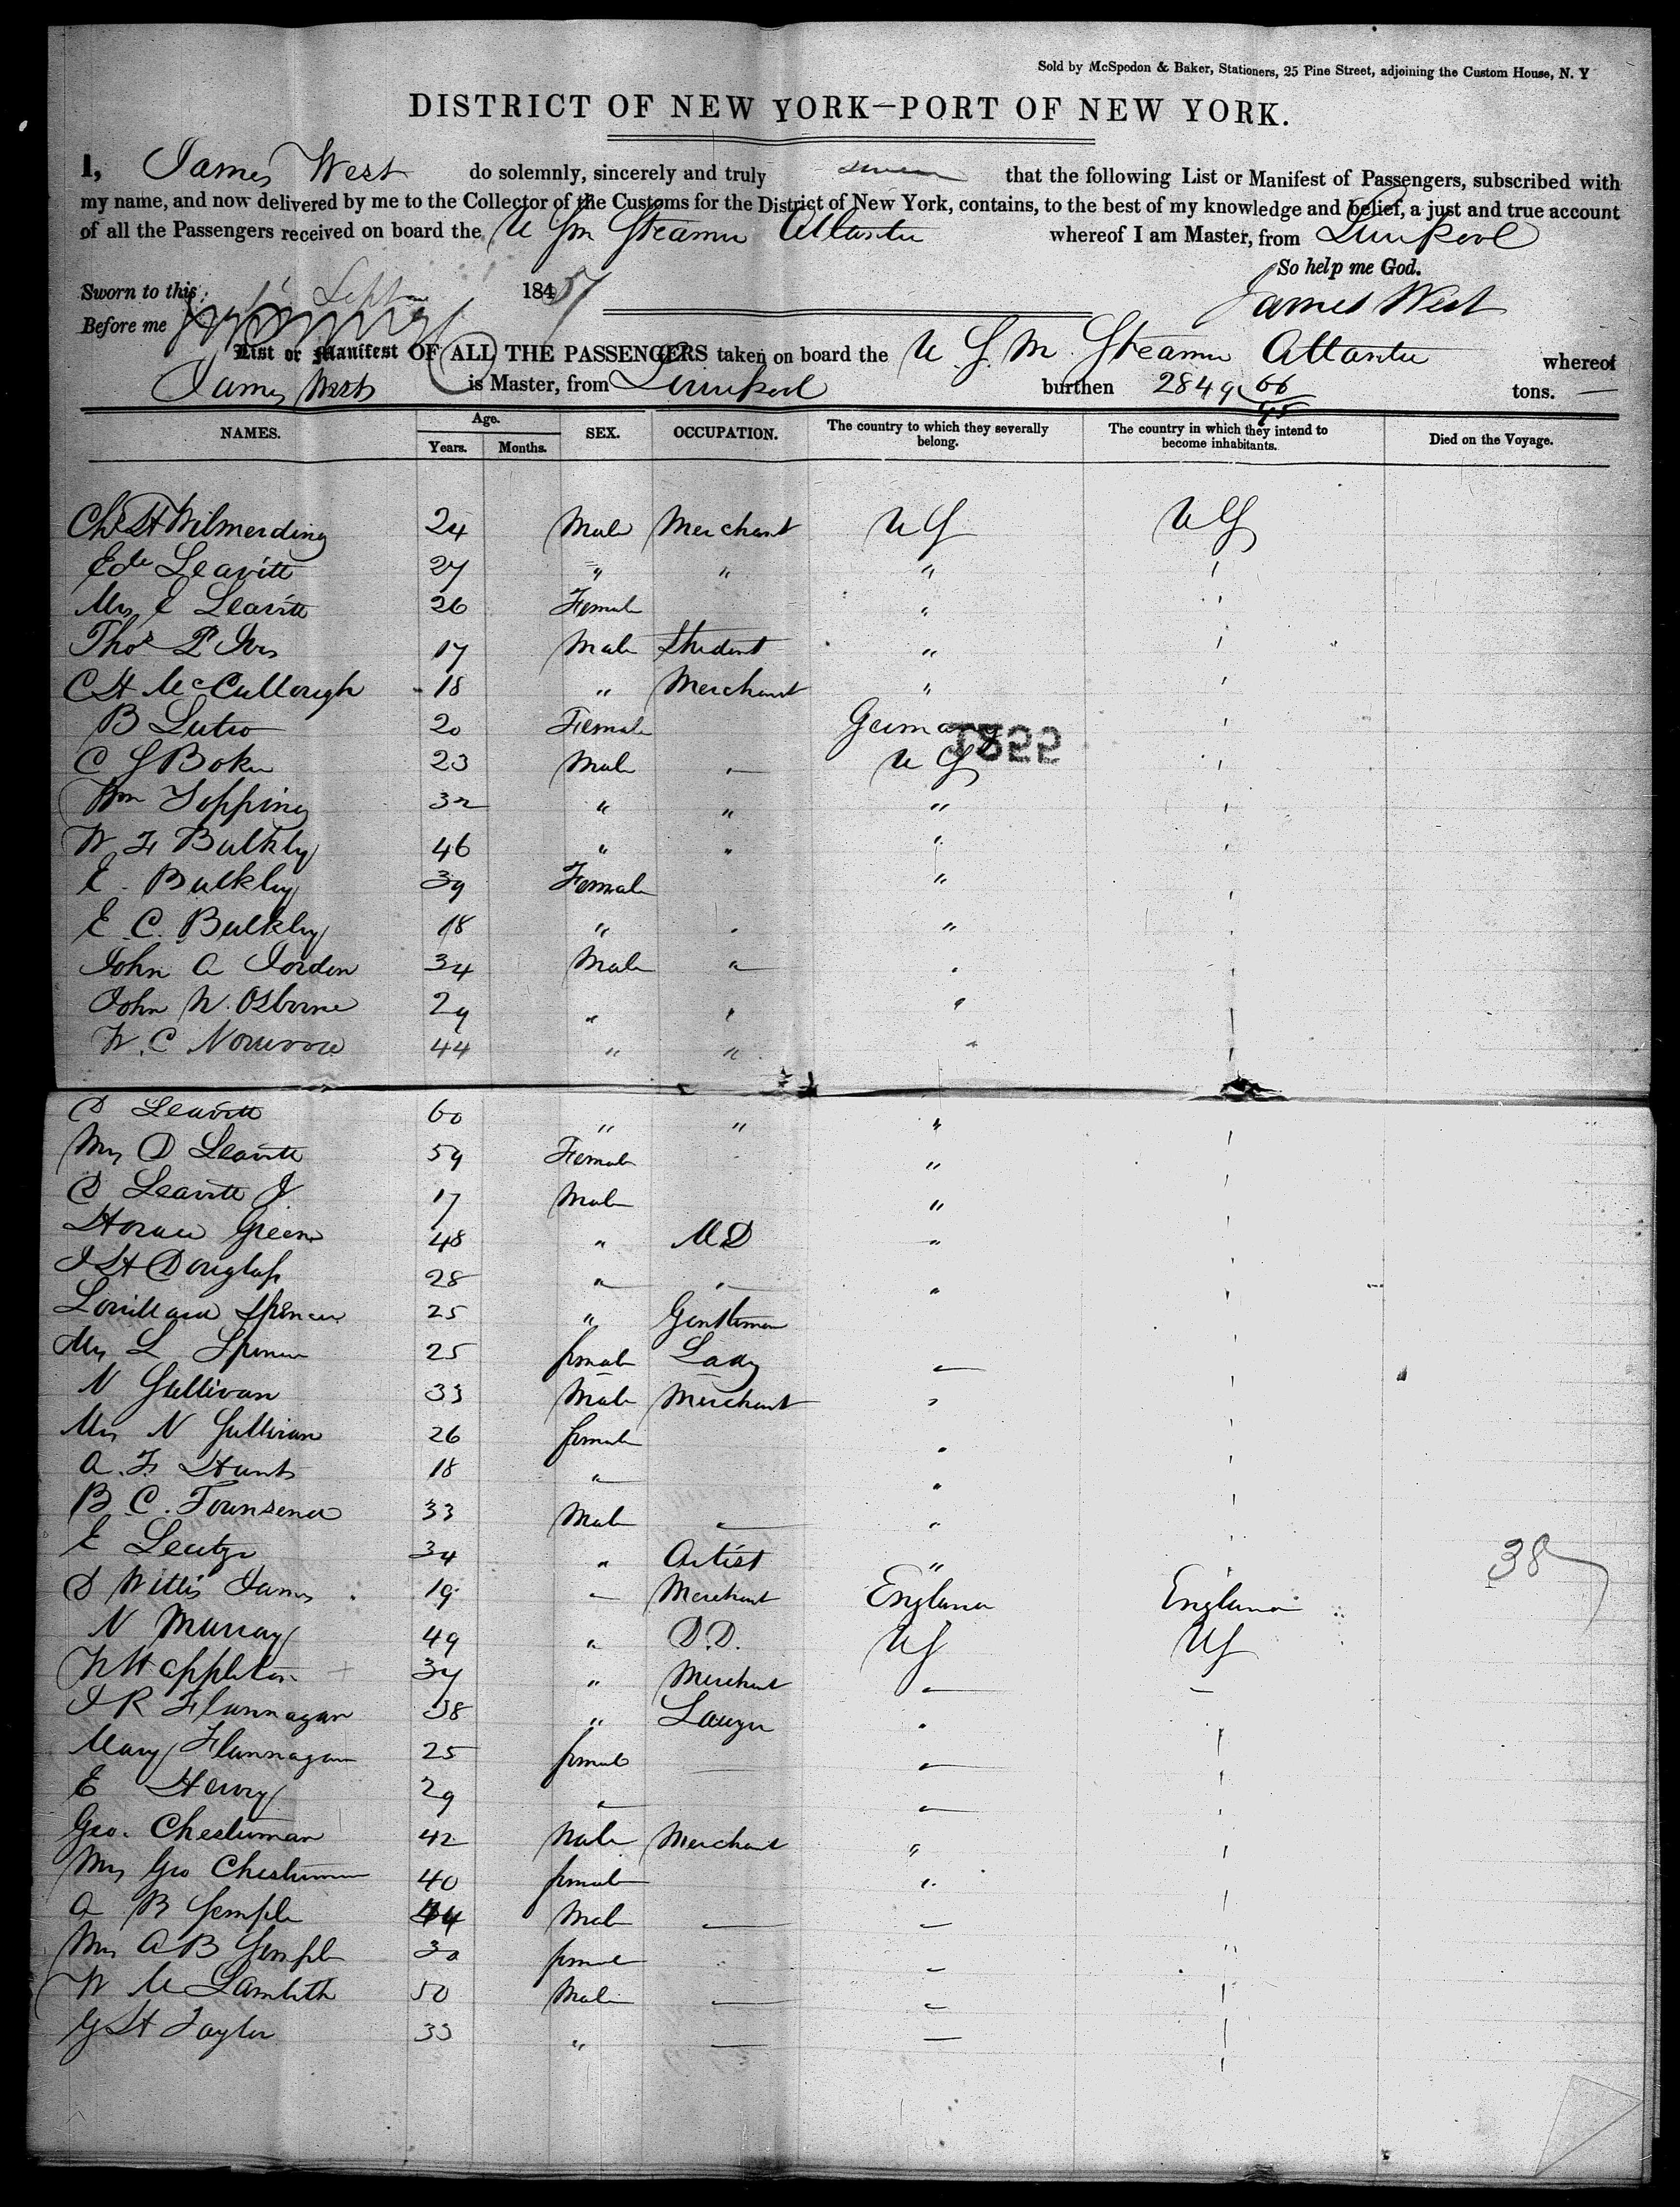 Sold by McSpedon & Baker, Stationers, 25 Pine Street, adjoining the Custom House, N. Y
DISTRICT OF NEW YORK—PORT OF NEW YORK.
I, James West do solemnly, sincerely and truly swear that the following List or Manifest of Passengers, subscribed with
my name, and now delivered by me to the Collector of the Customs for the District of New York, contains, to the best of my knowledge and belief, a just and true account
of all the Passengers received on board the U S M Steamer Atlantic whereof I am Master, from Liverpool
So help me God.
Sworn to this Sept 1851
James West
Before me
List or Manifest OF ALL THE PASSENGERS taken on board the U. S. M. Steamer Atlantic whereof
James West is Master, from Liverpool burthen 2849 66/95 tons.
NAMES. Age. SEX. OCCUPATION. The country to which they severally belong. The country in which they intend to become inhabitants. Died on the Voyage.
Years. Months.
Chs H Wilmerding 24 Male Merchant U S U S
Edw Leavitt 27 " " " "
Mrs E Leavitt 26 Female " "
Thos P Ives 17 Male Student " "
C H McCullough 18 " Merchant " "
B Lutro 20 Female Germany "
1522
C S Boker 23 Male " U S "
Wm Topping 32 " " " "
W F Bulkly 46 " " " "
E. Bulkley 39 Female " "
E. C. Bulkley 18 " " " "
John A Jordon 34 Male " " "
John W. Osborne 29 " " " "
W. C 44 " " " "
D Leavitt 60 " " " "
Mrs D Leavitt 59 Female " "
D Leavitt J 17 Male " "
Horace Green 48 " M D " "
J H Douglass 28 " " " "
Lorillard Spencer 25 " Gentleman "
Mrs L Spencer 25 female Lady " "
N Sullivan 33 Male Merchant " "
Mrs N Sullivan 26 female " "
A. F. Hunt 18 " " "
B C. Townsend 33 Male " " "
E Leutze 34 " Artist " "
38
D Willis James 19 " Merchant England England
N Murray 49 " D.D. U S U S
W H Appleton 37 " Merchant " "
J R Flannagan 38 " Lawyer " "
Mary Flannagan 25 female " "
E Henry 29 " " "
Geo. Chesterman 42 Male Merchant " "
Mrs Geo Chesterman 40 female " "
A B Semple 44 Male " " "
Mrs A B Semple 30 female " "
W M Lambeth 50 Male " " "
G H Taylor 33 " " " "